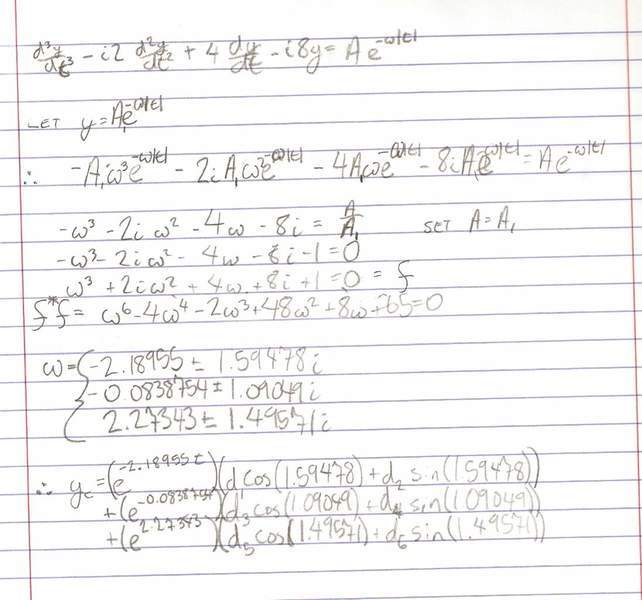 d³y/dt³ - i2 d²y/dt² + 4 dy/dt - i8y = A e^-ω|t|
LET y = A₁e^-ω|t|
∴ -A₁ω³e^-ω|t| - 2iA₁ω²e^-ω|t| - 4A₁ωe^-ω|t| - 8iA₁e^-ω|t| = Ae^-ω|t|
-ω³ - 2iω² - 4ω - 8i = A/A₁ SET A = A₁
-ω³ - 2iω² - 4ω - 8i - 1 = 0
ω³ + 2iω² + 4ω + 8i + 1 = 0 = f
f*f = ω⁶ - 4ω⁴ - 2ω³ + 48ω² + 8ω + 65 = 0
ω = { -2.18955 ± 1.59478i
-0.0838754 ± 1.09049i
2.27343 ± 1.49571i
∴ y_c = (e^-2.18955t)(d cos(1.59478) + d₂ sin(1.59478))
+ (e^-0.0838754t)(d₃ cos(1.09049) + d₄ sin(1.09049)
+ (e^2.27343)(d₅ cos(1.49571) + d₆ sin(1.49571))